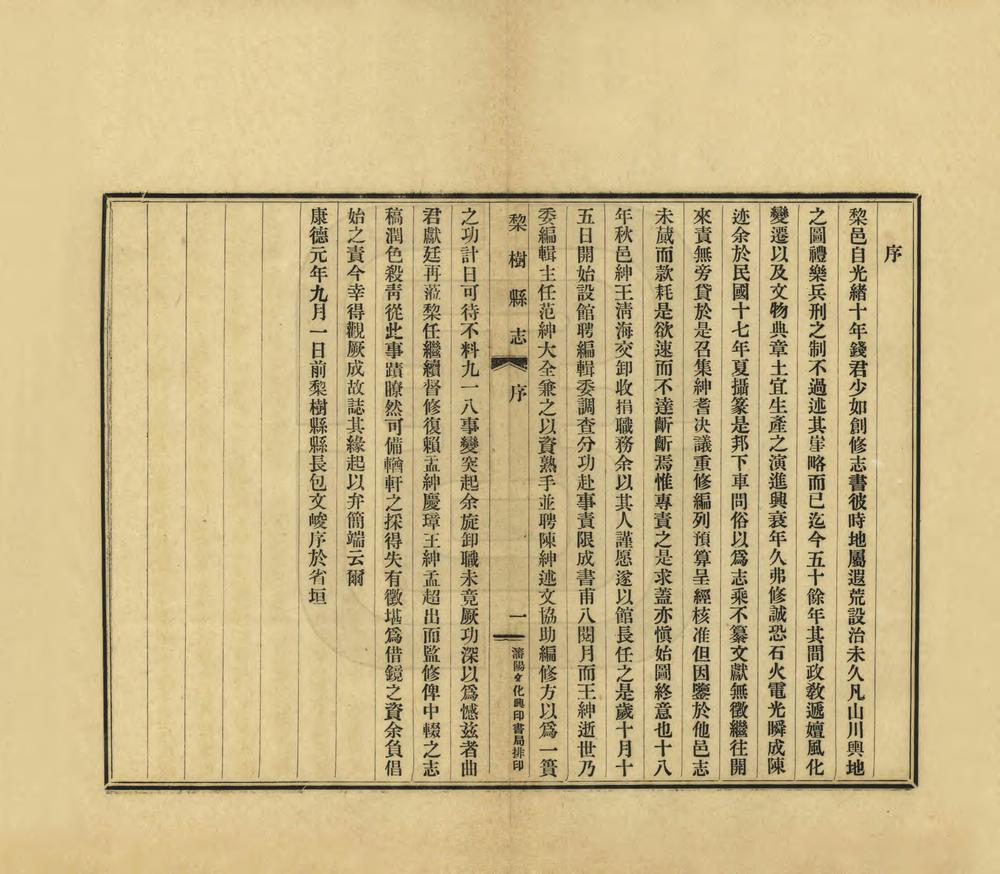 序
棃邑自光緒十年錢君少如創修志書彼時地屬遐荒設治未久凡山川輿地
之圖禮樂兵刑之制不過述其崖略而已迄今五十餘年其間政敎遞嬗風化
變遷以及文物典章土宜生產之演進興衰年久弗修誠恐石火電光瞬成陳
迹余於民國十七年夏攝篆是邦下車問俗以爲志乘不纂文獻無徵繼往開
來責無旁貸於是召集紳耆决議重修編列預算呈經核准但因鑒於他邑志
未蕆而款耗是欲速而不達斷斷焉惟專責之是求蓋亦愼始圖終意也十八
年秋邑紳王淸海交卸收捐職務余以其人謹愿遂以館長任之是歲十月十
五日開始設館聘編輯委調查分功赴事責限成書甫八閱月而王紳逝世乃
委編輯主任范紳大全兼之以資熟手並聘陳紳述文協助編修方以爲一簣
棃樹縣志
序
一
瀋陽文化興印書局排印
之功計日可待不料九一八事變突起余旋卸職未竟厥功深以爲憾玆者曲
君獻廷再蒞棃任繼續督修復賴孟紳慶璋王紳孟超出而監修俾中輟之志
稿潤色殺靑從此事蹟瞭然可備輶軒之採得失有徵堪爲借鏡之資余負倡
始之責今幸得觀厥成故誌其緣起以弁簡端云爾
康德元年九月一日前棃樹縣縣長包文峻序於省垣